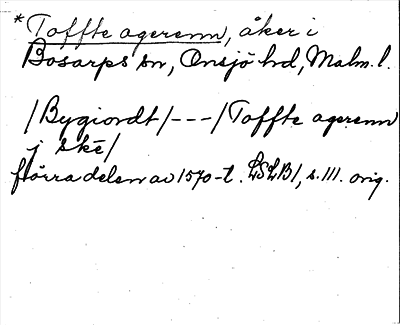 * Toffte agerenn, åker i
Bosarps sn, Onsjö hd, Malm. l.
/Bygiordt/---/Toffte agerenn
j skē/
förra delen av 1570-t. LSLB1, s. 111. orig.